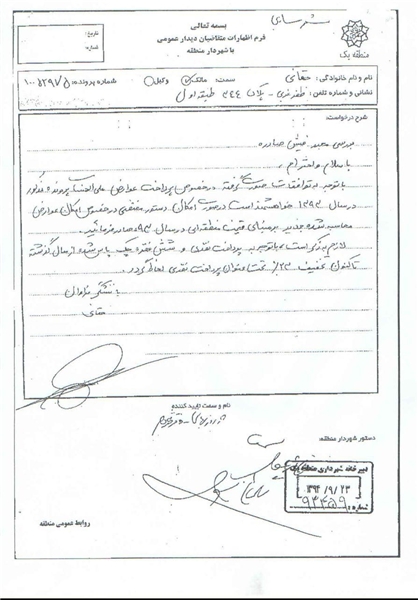 بسمه تعالی
فرم اظهارات متقاضیان دیدار عمومی
با شهردار منطقه
منطقه یک
تاریخ:
شماره:
نام و نام خانوادگی: حقانی سمت: مالک وکیل شماره پرونده:
نشانی و شماره تلفن: ظفر نوری - پلاک ۳۴۴ طبقه اول
شرح درخواست:
بررسی مجدد فیش صادره
با سلام و احترام،
با توجه به توافقات صورت گرفته در خصوص پرداخت عوارض علی الحساب پرونده مذکور
در سال ۱۳۹۳ خواهشمند است در صورت امکان دستور مقتضی در خصوص عوارض
محاسبه شده جدید بر مبنای قیمت منطقه ای در سال ۹۳ صادر فرمائید.
لازم بذکر است با توجه به پرداخت نقدی و شش فقره چک پاس شده از سال گذشته
تاکنون تخفیف ۲۳٪ تحت عنوان پرداخت نقدی لحاظ گردد.
با تشکر فراوان
حقانی
نام و سمت تایید کننده
دستور شهردار منطقه:
دبیرخانه شهرداری منطقه یک
۱۳۹۴/۹/۲۳
شماره: ۹۴۴۵۹
روابط عمومی منطقه